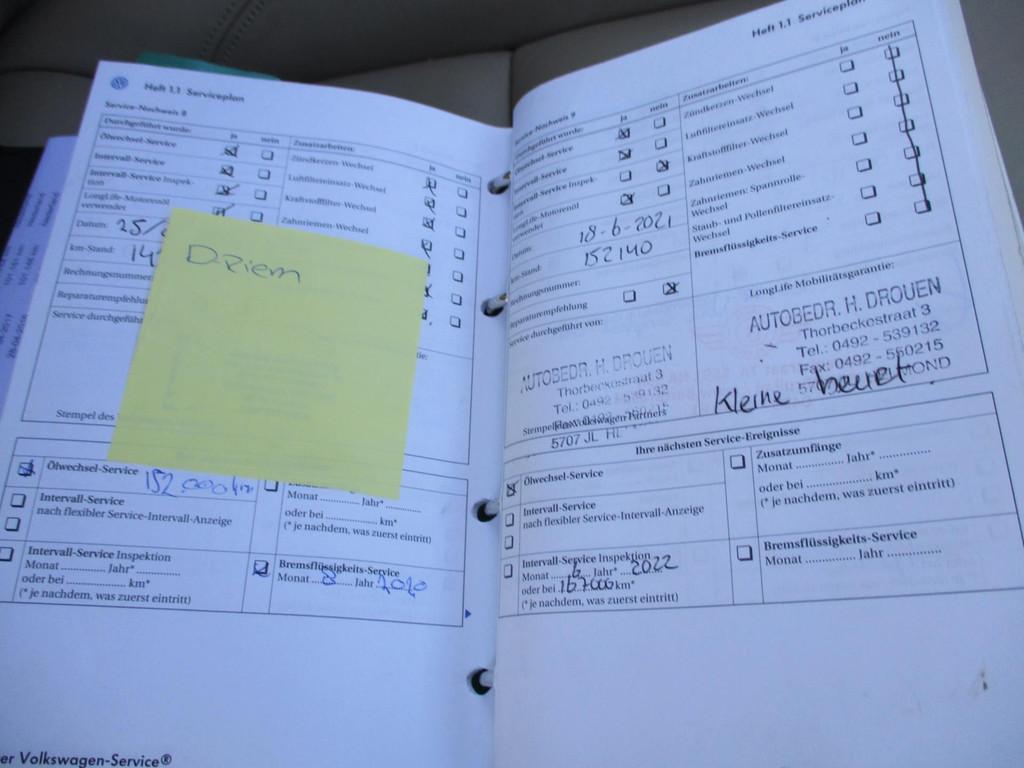 Heft 1.1 Serviceplan
Service-Nachweis 8
Durchgeführt wurde:
ja
nein
Ölwechsel-Service
Intervall-Service
Intervall-Service Inspek-
tion
LongLife-Motorenöl
verwendet
Datum: 25/
km-Stand: 14
Rechnungsnummer
Reparaturempfehlu
Service durchgeführ
Stempel des
Zusatzarbeiten:
ja
nein
Zündkerzen-Wechsel
Luftfiltereinsatz-Wechsel
Kraftstofffilter-Wechsel
Zahnriemen-Wechsel
tie:
D-Riem
Ölwechsel-Service
152.000 km
Intervall-Service
nach flexibler Service-Intervall-Anzeige
Intervall-Service Inspektion
Monat ............ Jahr* ............
oder bei ............ km*
(* je nachdem, was zuerst eintritt)
Monat ............ Jahr* ............
oder bei ............ km*
(* je nachdem, was zuerst eintritt)
Bremsflüssigkeits-Service
Monat 8 Jahr 2020
er Volkswagen-Service®
Heft 1.1 Serviceplan
Service-Nachweis 9
Durchgeführt wurde:
ja
nein
Ölwechsel-Service
Intervall-Service
Intervall-Service Inspek-
tion
LongLife-Motorenöl
verwendet
Datum: 18-6-2021
km-Stand: 152140
Rechnungsnummer:
Reparaturempfehlung
Service durchgeführt von:
AUTOBEDR. H. DROUEN
Thorbeckestraat 3
Tel.: 0492 - 539132
5707 JL
Zusatzarbeiten:
ja
nein
Zündkerzen-Wechsel
Luftfiltereinsatz-Wechsel
Kraftstofffilter-Wechsel
Zahnriemen-Wechsel
Zahnriemen: Spannrolle-
Wechsel
Staub- und Pollenfiltereinsatz-
Wechsel
Bremsflüssigkeits-Service
LongLife Mobilitätsgarantie:
AUTOBEDR. H. DROUEN
Thorbeckestraat 3
Tel.: 0492 - 539132
Fax: 0492 - 550215
Kleine beurt
Ihre nächsten Service-Ereignisse
Ölwechsel-Service
Intervall-Service
nach flexibler Service-Intervall-Anzeige
Intervall-Service Inspektion
Monat 6 Jahr* 2022
oder bei 167000 km*
(* je nachdem, was zuerst eintritt)
Zusatzumfänge
Monat ............ Jahr* ............
oder bei ............ km*
(* je nachdem, was zuerst eintritt)
Bremsflüssigkeits-Service
Monat ............ Jahr ............